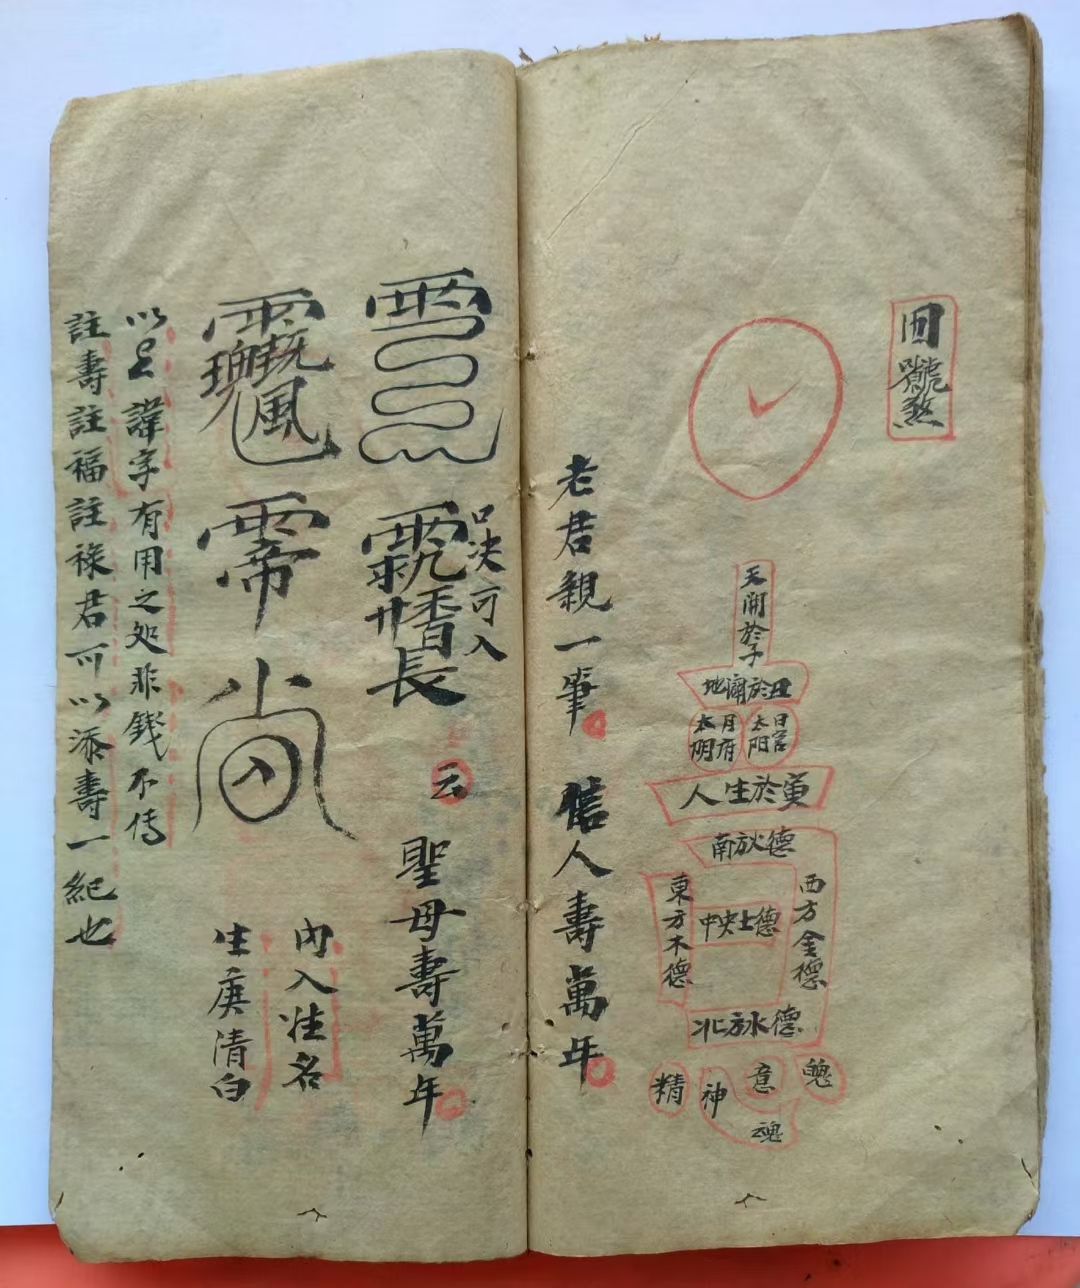 天開於子
地闢於丑
日宫太阳
月府太明
人生於寅
南方火德
東方木德
中央土德
西方金德
北方水德
精
神
意
魄
魂
老君親一筆
信人壽萬年
口决可入
云
聖母壽萬年
内入姓名
生庚清白
以上諱字有用之处非錢不传
註壽註福註禄君可以添壽一紀也